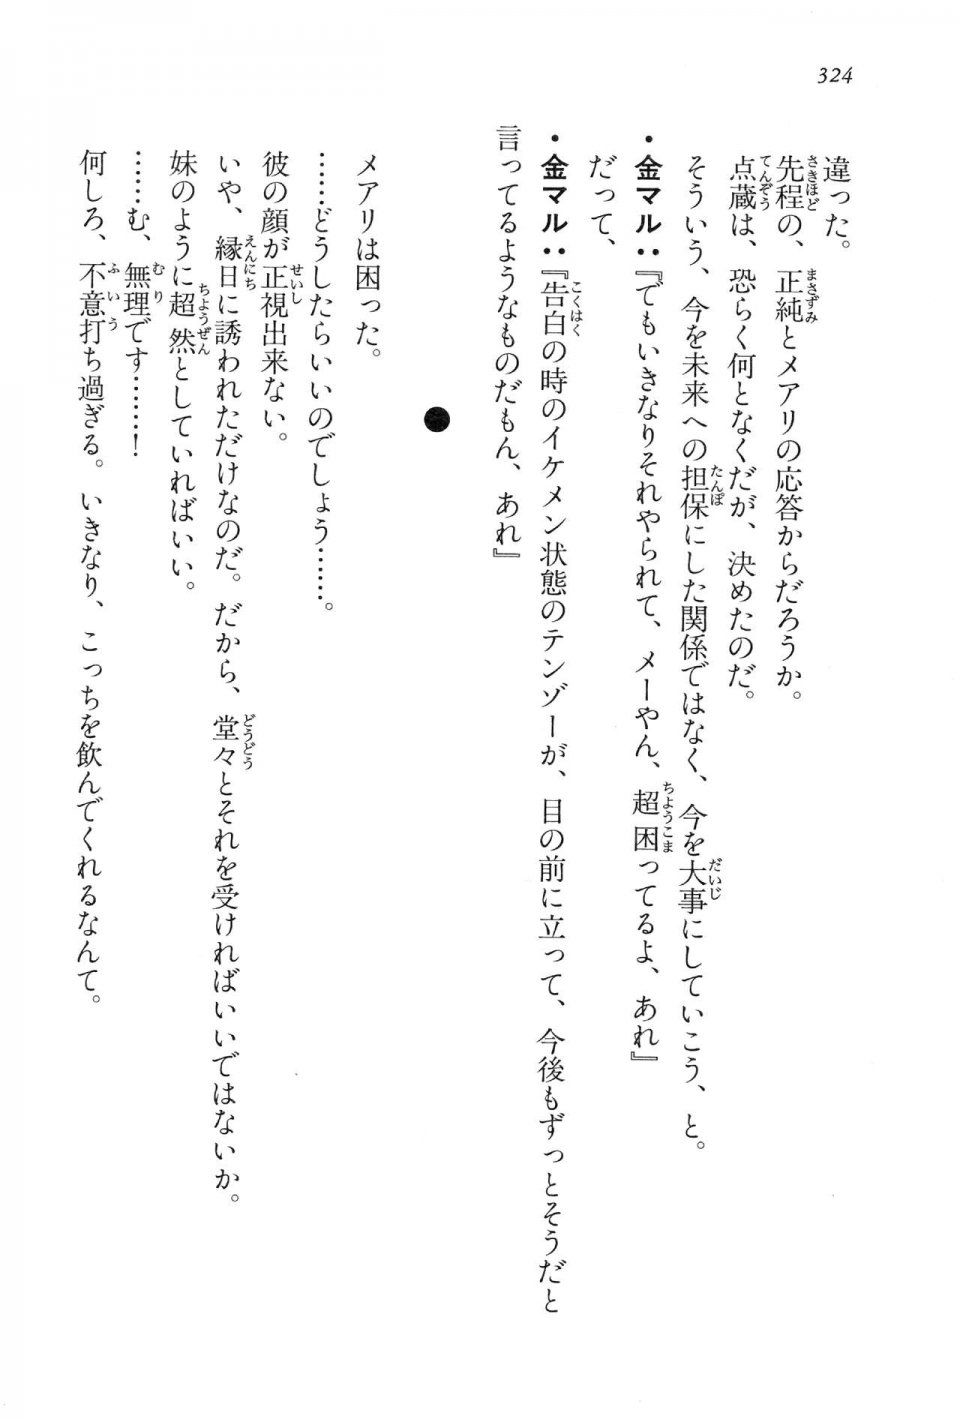 324
違った。
先程の、正純とメアリの応答からだろうか。
点蔵は、恐らく何となくだが、決めたのだ。
そういう、今を未来への担保にした関係ではなく、今を大事にしていこう、と。
・金マル：『でもいきなりそれやられて、メーやん、超困ってるよ、あれ』
だって、
・金マル：『告白の時のイケメン状態のテンゾーが、目の前に立って、今後もずっとそうだと
言ってるようなものだもん、あれ』
●
メアリは困った。
……どうしたらいいのでしょう……。
彼の顔が正視出来ない。
いや、縁日に誘われただけなのだ。だから、堂々とそれを受ければいいではないか。
妹のように超然としていればいい。
……む、無理です……！
何しろ、不意打ち過ぎる。いきなり、こっちを飲んでくれるなんて。